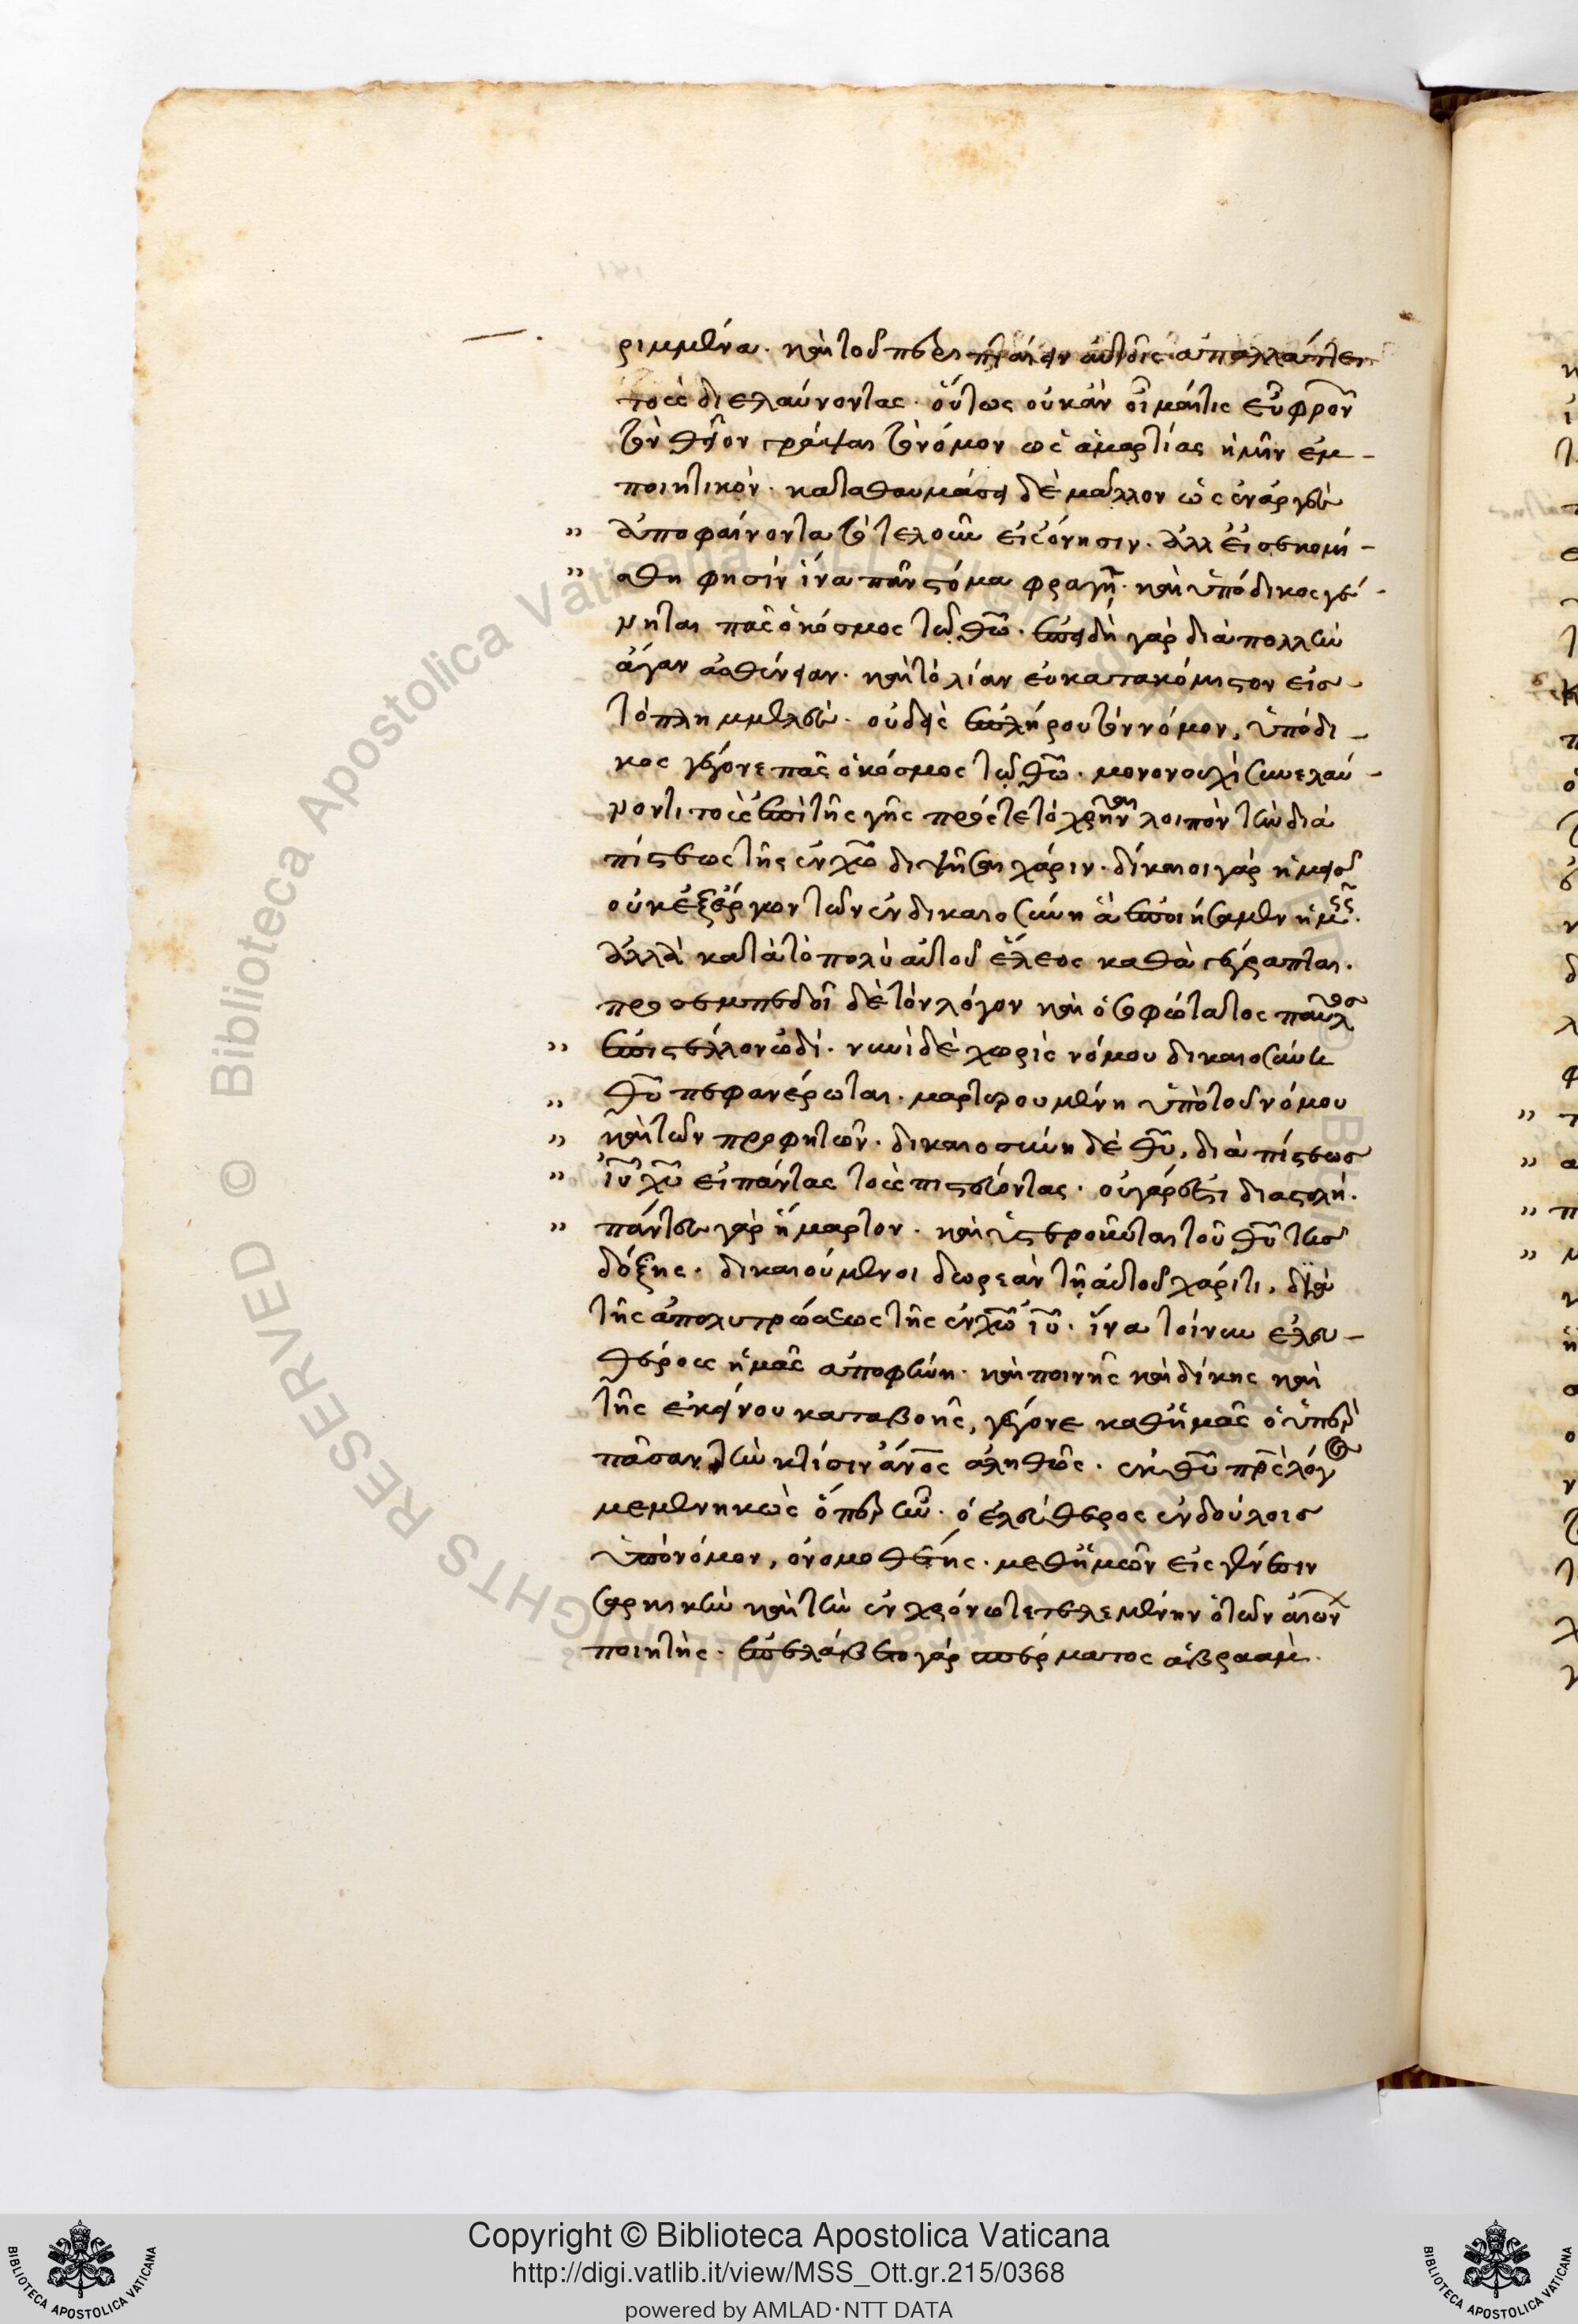 ριμμένα. καὶ τοῦ περιπταίειν αὐτοῖς ἀπαλλάττει
τοὺς διελαύνοντας. οὕτως οὐκ ἂν οἶμαί τις εὖ φρονῶν
τὸν θεῖον γράψαι τὸν νόμον ὡς ἁμαρτίας ἡμῖν ἐμ-
ποιητικὸν. καταθαυμάσει δὲ μᾶλλον ὡς ἐναργὲς
" ἀποφαίνοντα τὸ τελοῦν εἰς ὄνησιν. ἀλλ' εἰσεκομί-
" σθη φησὶν ἵνα πᾶν στόμα φραγῇ. καὶ ὑπόδικος γέ-
νηται πᾶς ὁ κόσμος τῷ θ̅ω̅. ἐπειδὴ γὰρ διὰ πολλὴν
ἄγαν ἀσθένειαν. καὶ τὸ λίαν εὐκατακόμιστον εἰσ
τὸ πλημμελὲς. οὐδεὶς ἐπλήρου τὸν νόμον, ὑπόδι-
κος γέγονε πᾶς ὁ κόσμος τῷ θ̅ω̅. μονονουχὶ συνελαύ-
νοντι τοὺς ἐπὶ τῆς γῆς πρός γε τὸ χρῆναι λοιπὸν τὴν διὰ
πίστεως τῆς ἐν χ̅ω̅ διψῆσαι χάριν. δίκαιοι γὰρ ἡμεῖς
οὐκ ἐξ ἔργων τῶν ἐν δικαιοσύνῃ ἃ ἐποιήσαμεν ἡμεῖς.
ἀλλὰ κατὰ τὸ πολὺ αὐτοῦ ἔλεος καθὰ γέγραπται.
προσεμπεδοῖ δὲ τὸν λόγον καὶ ὁ σοφώτατος παῦλος
" ἐπιστέλλον ὡδί. νυνὶ δὲ χωρὶς νόμου δικαιοσύνη
" θ̅υ̅ πεφανέρωται. μαρτυρουμένη ὑπὸ τοῦ νόμου
" καὶ τῶν προφητῶν. δικαιοσύνη δὲ θ̅υ̅, διὰ πίστεως
" ἰ̅υ̅ χ̅υ̅ εἰ πάντας τοὺς πιστεύοντας. οὐ γάρ ἐστι διαστολή.
" πάντες γὰρ ἥμαρτον. καὶ ὑστεροῦνται τοῦ θ̅υ̅ τῆς
δόξης. δικαιούμενοι δωρεὰν τῇ αὐτοῦ χάριτι, διὰ
τῆς ἀπολυτρώσεως τῆς ἐν χ̅ω̅ ἰ̅υ̅. ἵνα τοίνυν ἐλευ-
θέρους ἡμᾶς ἀποφήνῃ. καὶ ποινῆς καὶ δίκης καὶ
τῆς ἐκείνου καταβοῆς, γέγονε καθ' ἡμᾶς ὁ ὑπὲρ
πᾶσαν τὴν κτίσιν ἄν̅ο̅ς ἀληθῶς. ἐκ θ̅υ̅ π̅ρ̅ς λόγος
μεμενηκὼς ὅπερ ἦν. ὁ ἐλεύθερος ἐν δούλοις
ὑπὸ νόμον, ὁ νομοθέτης. μεθ' ἡμῶν εἰς γένεσιν
σαρκικὴν καὶ τὴν ἐν χρόνῳ τετελεμένην ὁ τῶν αἰώνων
ποιητὴς. ἐπελάβετο γὰρ σπέρματος ἀβραὰμ.
Copyright © Biblioteca Apostolica Vaticana
http://digi.vatlib.it/view/MSS_Ott.gr.215/0368
powered by AMLAD·NTT DATA